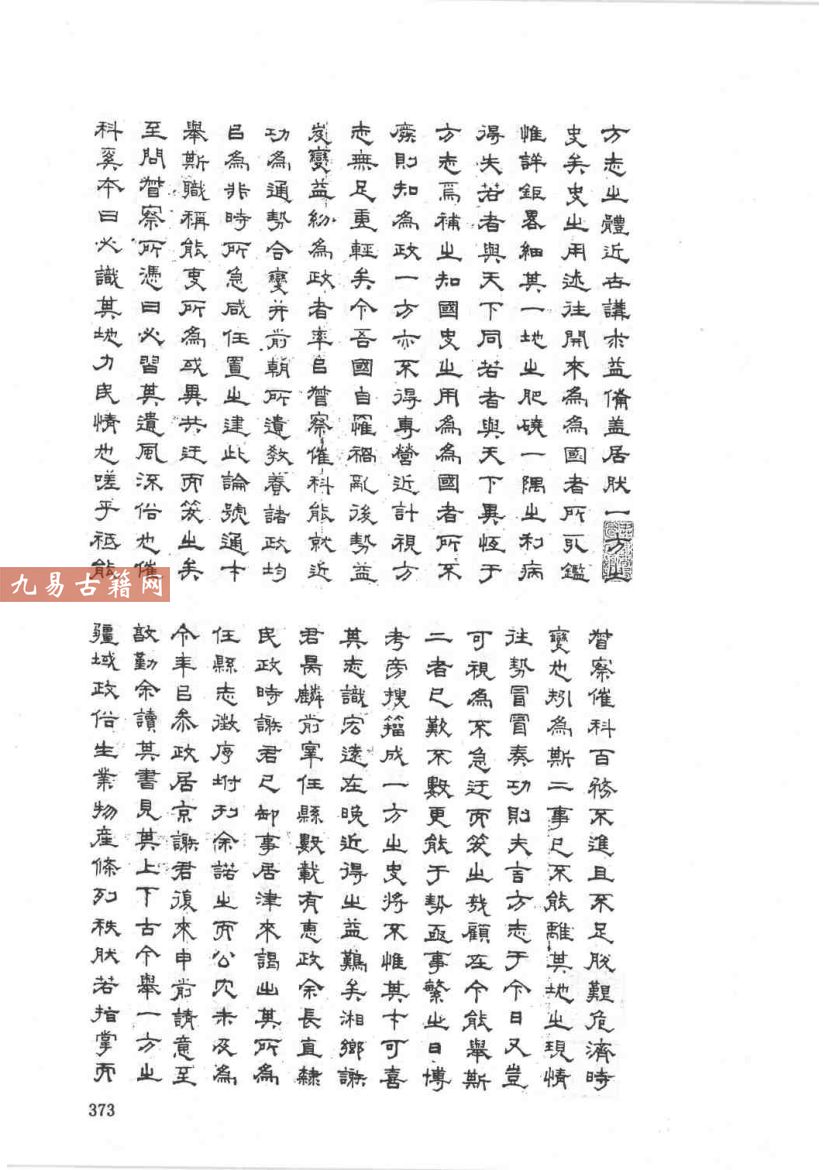 方志之體近古講求益備蓋居然一方之
史矣史之用述往開來為為國者所取鑑
惟詳鉅畧細其一地之肥磽一隅之利病
得失若者與天下同若者與天下異恆于
方志焉補之知國史之用為為國者所不
廢則知為政一方亦不得專營近計視方
志無足重輕矣今吾國自罹禍亂後勢益
岌變益紛為政者率㠯督察催科能就近
功為通勢合變并前朝所遺教養諸政均
㠯為非時所急咸任置之建此論號通才
舉斯職稱能吏所為或異共迂而笑之矣
至問督察所憑曰必習其遺風流俗也催
科奚本曰必識其地力民情也嗟乎祗能
督察催科百務不進且不足脫艱危濟時
變也矧為斯二事已不能離其地之現情
往勢冒冒奏功則夫言方志于今日又豈
可視為不急迂而笑之哉顧在今能舉斯
二者已歎不數更能于勢亟事繁之日博
考旁搜籀成一方之史將不惟其才可喜
其志識宏遠在晚近得之益難矣湘鄉謝
君昺麟前宰任縣數載有惠政余長直隸
民政時謝君已卸事居津來謁出其所為
任縣志徵序坿刊余諾之而公冗未及為
今年㠯參政居京謝君復來申前請意至
勤余讀其書見其上下古今舉一方之
疆域政俗生業物產條列秩然若指掌而
373
九易古籍网